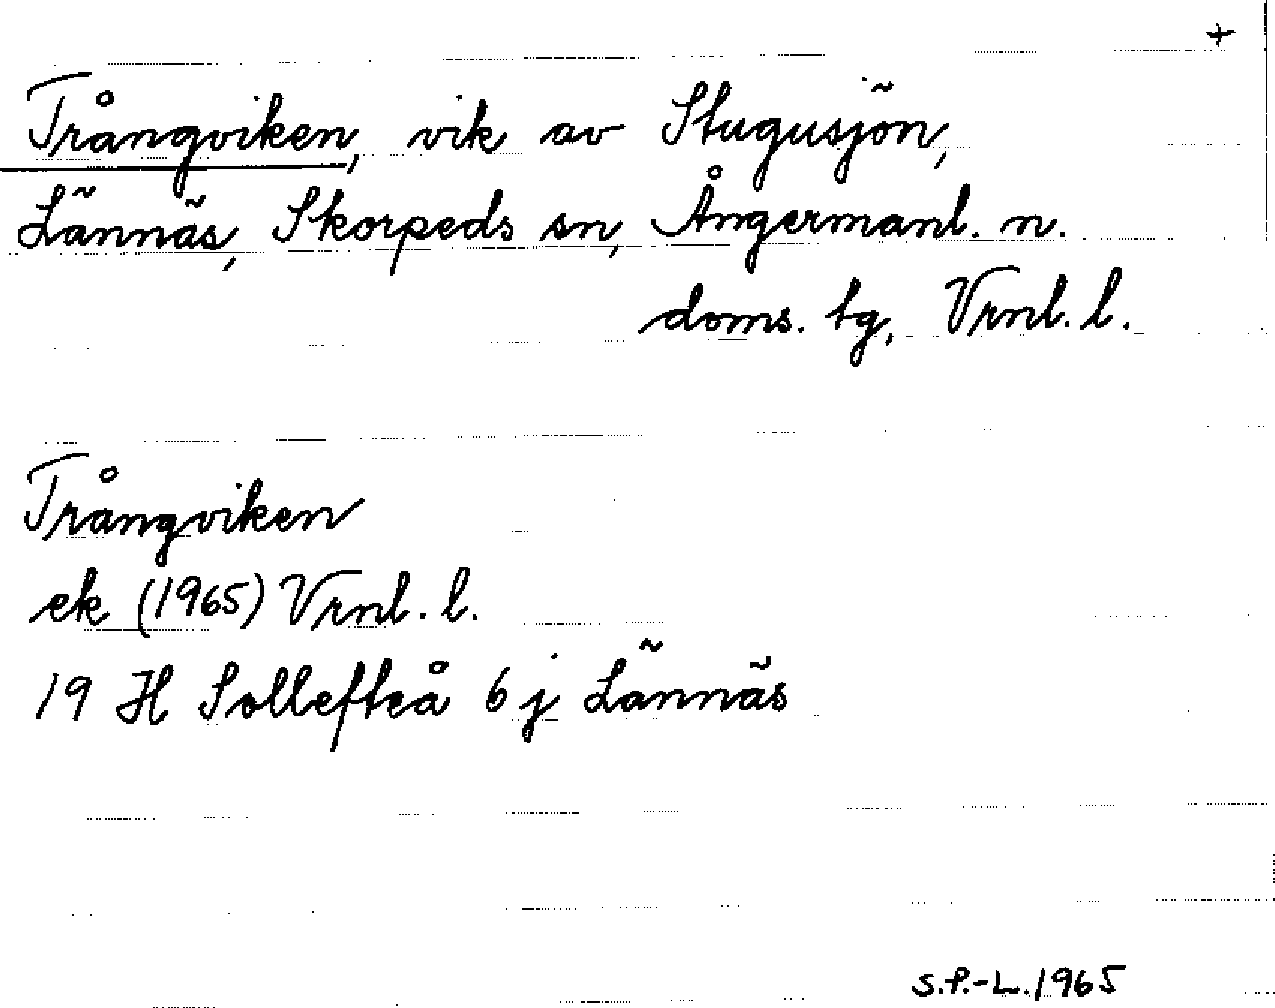 +
Trångviken, vik av Stugusjön,
Lännäs, Skorpeds sn, Ångermanl. n.
doms. tg, Vrnl. l.
Trångviken
ek (1965) Vrnl. l.
19 H Sollefteå 6 j Lännäs
S.P.-L. 1965